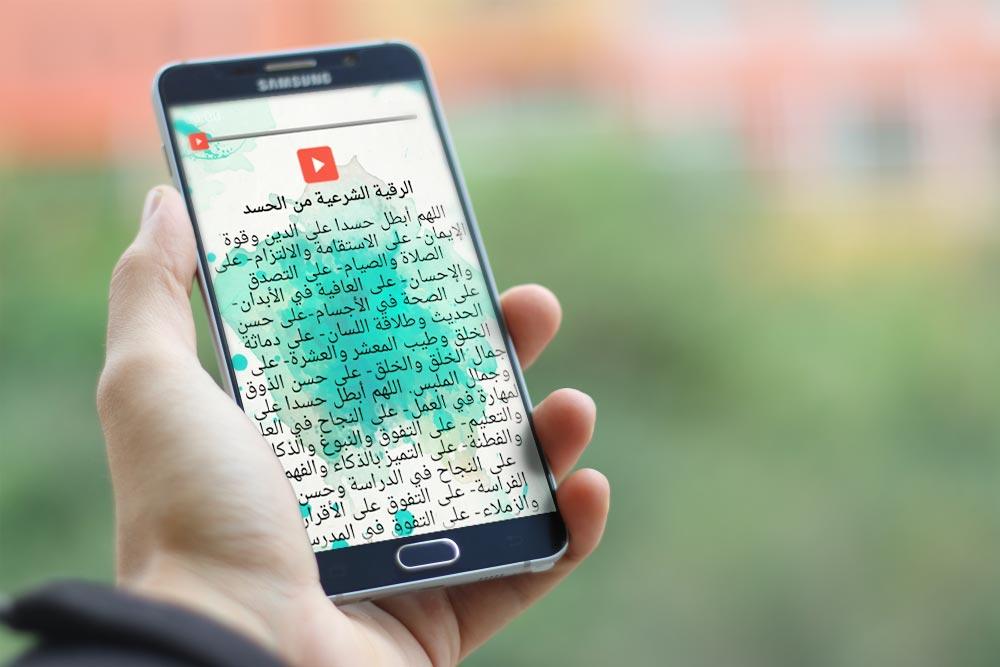 SAMSUNG
الرقية الشرعية من الحسد
اللهم أبطل حسدا على الدين وقوة
الإيمان- على الاستقامة والالتزام- على
الصلاة والصيام- على التصدق
والإحسان- على العافية في الأبدان-
على الصحة في الأجسام-على حسن
الحديث وطلاقة اللسان- على دماثة
الخلق وطيب المعشر والعشرة- على
جمال الخلق والخلق- على حسن الذوق
وجمال الملبس. اللهم أبطل حسدا على
المهارة في العمل- على النجاح في
والتعليم- على التفوق والنبوغ والذكا
والفطنة- على التميز بالذكاء والفهم
على النجاح في الدراسة وحسن
الفراسة- على التفوق على الأقرا
والزملاء- على التفوق في المدرس